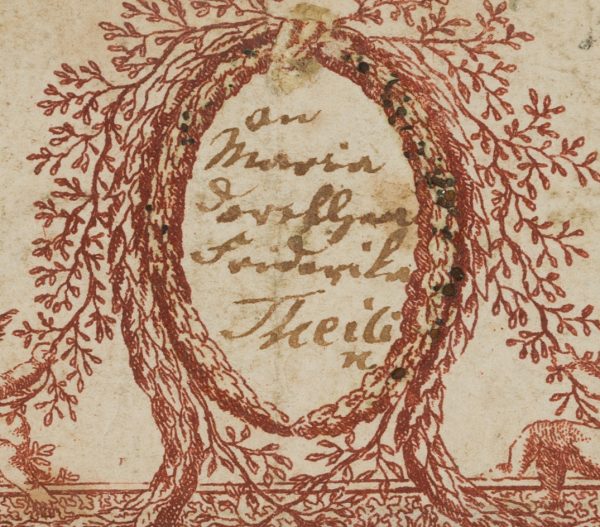 an
Maria
Dorethea
Frederika
Theili
n